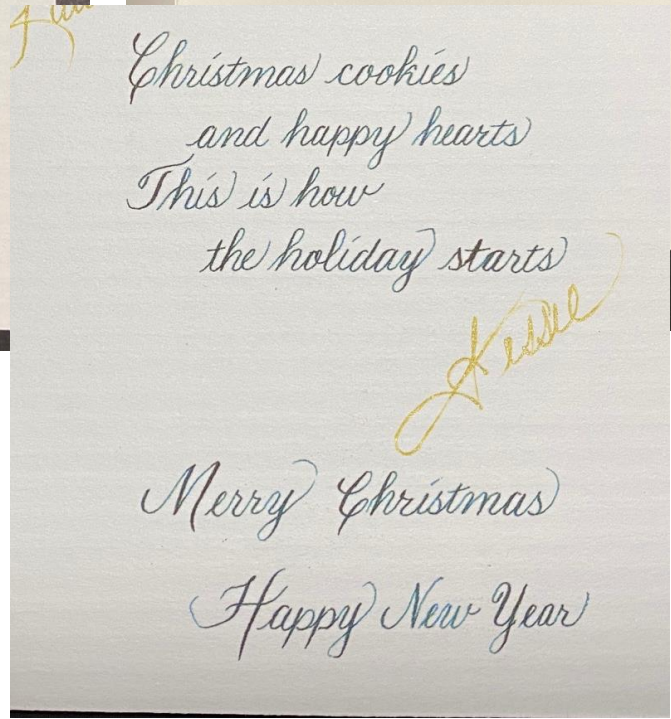 Christmas cookies
and happy hearts
This is how
the holiday starts
Merry Christmas
Happy New Year